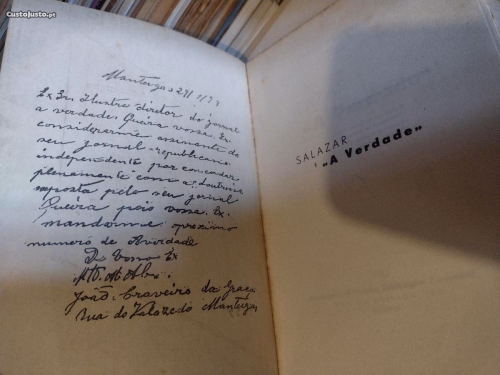 CustoJusto.pt
Manteigas 2
Ex Sr. Ilustre diretor do jornal
a verdade. Queira vossa. Ex.
considerarme assinante do
seu jornal republicano
independente por concordar
plenamente com a doutrina
exposta pelo seu jornal
Queira pois vossa. Ex.
mandarme o proximo
numero de Averdade
De Vossa Ex
João Craveiro da Graça
Rua do Manteigas
SALAZAR
"A Verdade"